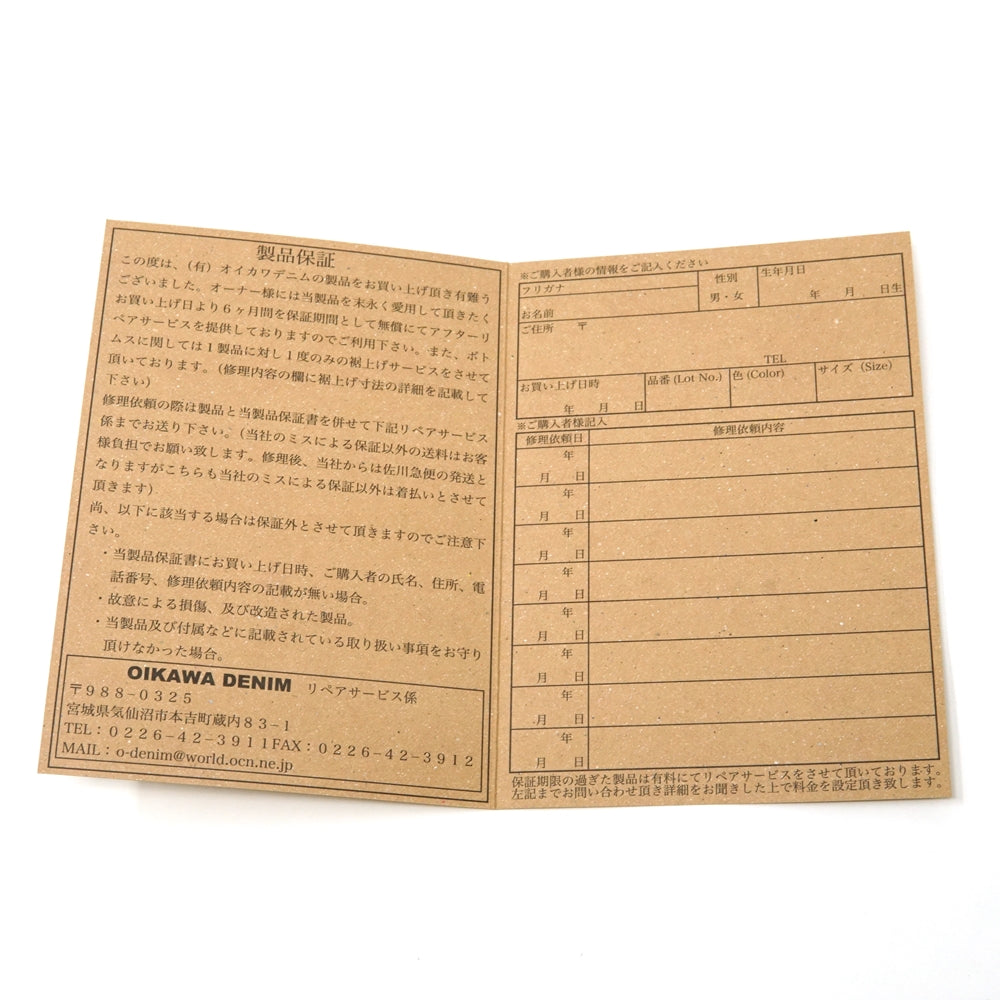 製品保証
この度は、(有) オイカワデニムの製品をお買い上げ頂き有難う
ございました。オーナー様には当製品を末永く愛用して頂きたく
お買い上げ日より6ヶ月間を保証期間として無償にてアフターリ
ペアサービスを提供しておりますのでご利用下さい。また、ボト
ムスに関しては1製品に対し1度のみの裾上げサービスをさせて
頂いております。(修理内容の欄に裾上げ寸法の詳細を記載して
下さい)
修理依頼の際は製品と当製品保証書を併せて下記リペアサービス
係までお送り下さい。(当社のミスによる保証以外の送料はお客
様負担でお願い致します。修理後、当社からは佐川急便の発送と
なりますがこちらも当社のミスによる保証以外は着払いとさせて
頂きます)
尚、以下に該当する場合は保証外とさせて頂きますのでご注意下
さい。
・当製品保証書にお買い上げ日時、ご購入者の氏名、住所、電
話番号、修理依頼内容の記載が無い場合。
・故意による損傷、及び改造された製品。
・当製品及び付属などに記載されている取り扱い事項をお守り
頂けなかった場合。
OIKAWA DENIM リペアサービス係
〒988-0325
宮城県気仙沼市本吉町蔵内83-1
TEL:0226-42-3911FAX:0226-42-3912
MAIL:o-denim@world.ocn.ne.jp
※ご購入者様の情報をご記入ください
フリガナ
お名前
性別
男・女
生年月日
年 月 日生
ご住所 〒
TEL
お買い上げ日時
年 月 日
品番 (Lot No.)
色 (Color)
サイズ (Size)
※ご購入者様記入
修理依頼日 修理依頼内容
年
月 日
年
月 日
年
月 日
年
月 日
年
月 日
年
月 日
年
月 日
年
月 日
保証期限の過ぎた製品は有料にてリペアサービスをさせて頂いております。
左記までお問い合わせ頂き詳細をお聞きした上で料金を設定頂き致します。